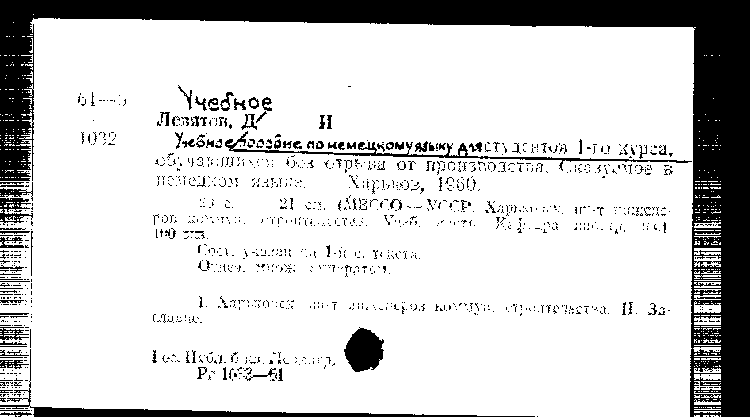 61—5
1032
Учебное
Левитов, Д И
Учебное пособие по немецкому языку для студентов 1-го курса,
обучающихся без отрыва от производства. Сказуемое в
немецком языке. Харьков, 1960.
с. 21 см. (МВССО УССР. Харьковск. ин-т инжене-
ров коммун. строительства.
100 экз.
Сост. указан на 1-й с. текста.
Отпеч. множ. аппаратом.
I. Харьковск. ин-т инженеров коммун. строительства. II. За-
главие.
Гос. Публ. б-ка, Ленингр.
Рг 1033—61